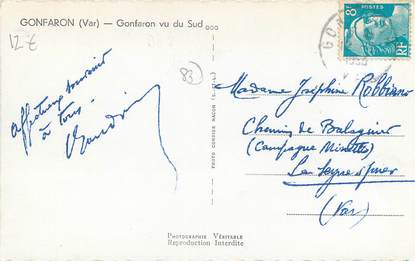 GONFARON (Var) — Gonfaron vu du Sud
12 €
83
Affectueux souvenir
à tous
Madame Joséphine Robbiano
Chemin de Balaguier
(Campagne Minette)
La Seyne s/mer
(Var)
8F
POSTES
RF
PHOTO COMBIER MACON
PHOTOGRAPHIE VÉRITABLE
Reproduction Interdite